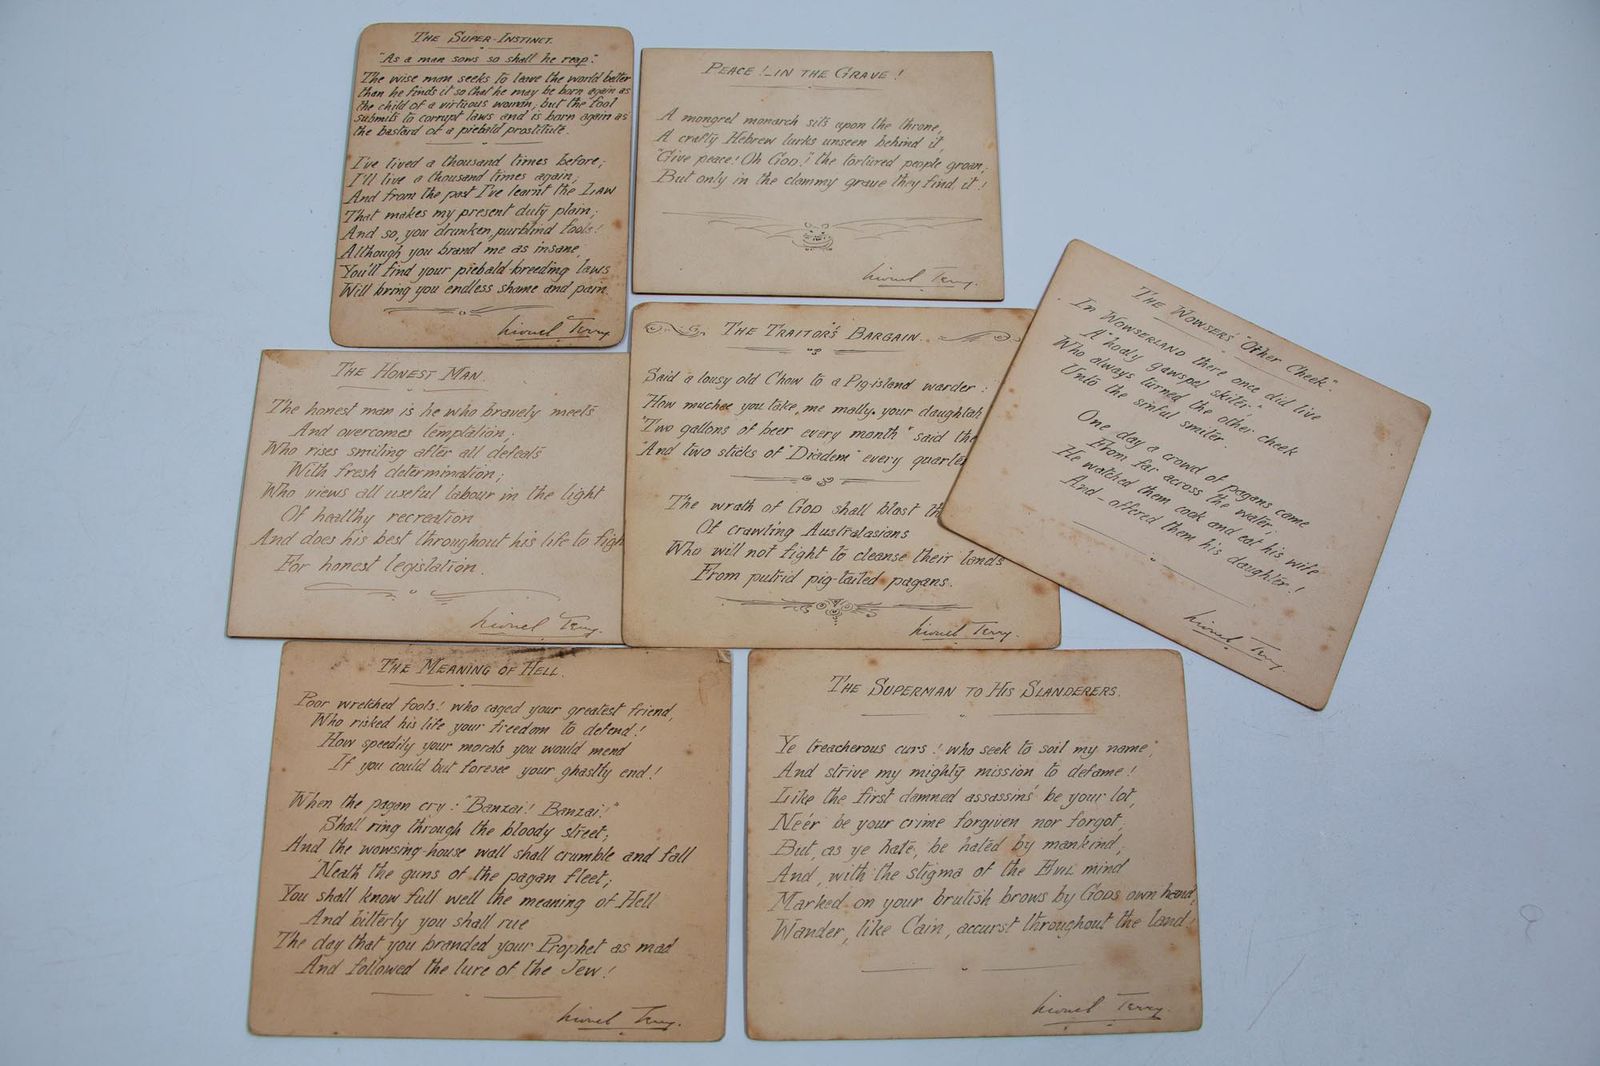 The Super-Instinct.
"As a man sows so shall he reap."
The wise man seeks to leave the world better
than he finds it so that he may be born again as
the child of a virtuous woman, but the fool
submits to corrupt laws and is born again as
the bastard of a piebald prostitute.
I've lived a thousand times before;
I'll live a thousand times again;
And from the past I've learnt the LAW
That makes my present duty plain;
And so, you drunken, purblind fools!
Although you brand me as insane,
You'll find your piebald-breeding laws
Will bring you endless shame and pain.
Lionel Terry
Peace! - in the Grave!
A mongrel monarch sits upon the throne,
A crafty Hebrew lurks unseen behind it,
"Give peace! Oh God!" the tortured people groan;
But only in the clammy grave they find it!
Lionel Terry.
The Honest Man.
The honest man is he who bravely meets
And overcomes temptation;
Who rises smiling after all defeats
With fresh determination;
Who views all useful labour in the light
Of healthy recreation
And does his best throughout his life to figh
For honest legislation.
Lionel Terry.
The Traitor's Bargain.
Said a lousy old Chow to a Pig-island warder:
How muchee you take, me mally your daughtah
"Two gallons of beer every month" said the
"And two sticks of "Diadem" every quarte
The wrath of God shall blast th
Of crawling Australasians
Who will not fight to cleanse their lands
From putrid pig-tailed pagans.
Lionel Terry.
The Wowser's "Other Cheek".
In Wowserland there once did live
A "hooly gawspel skiter,"
Who always turned the other cheek
Unto the sinful smiter.
One day a crowd of pagans came
From far across the water;
He watched them cook and eat his wife
And - offered them his daughter!
Lionel Terry
The Meaning of Hell.
Poor wretched fools! who caged your greatest friend,
Who risked his life your freedom to defend!
How speedily your morals you would mend
If you could but foresee your ghastly end!
When the pagan cry: "Banzai! Banzai!"
Shall ring through the bloody street;
And the wowsing-house wall shall crumble and fall
'Neath the guns of the pagan fleet;
You shall know full well the meaning of Hell
And bitterly you shall rue
The day that you branded your Prophet as mad
And followed the lure of the Jew!
Lionel Terry.
The Superman to His Slanderers.
Ye treacherous curs! who seek to soil my name,
And strive my mighty mission to defame!
Like the first damned assassins' be your lot,
Ne'er be your crime forgiven nor forgot;
But, as ye hate, be hated by mankind;
And, with the stigma of the Evil mind
Marked on your brutish brows by Gods own hand,
Wander, like Cain, accurst throughout the land!
Lionel Terry.